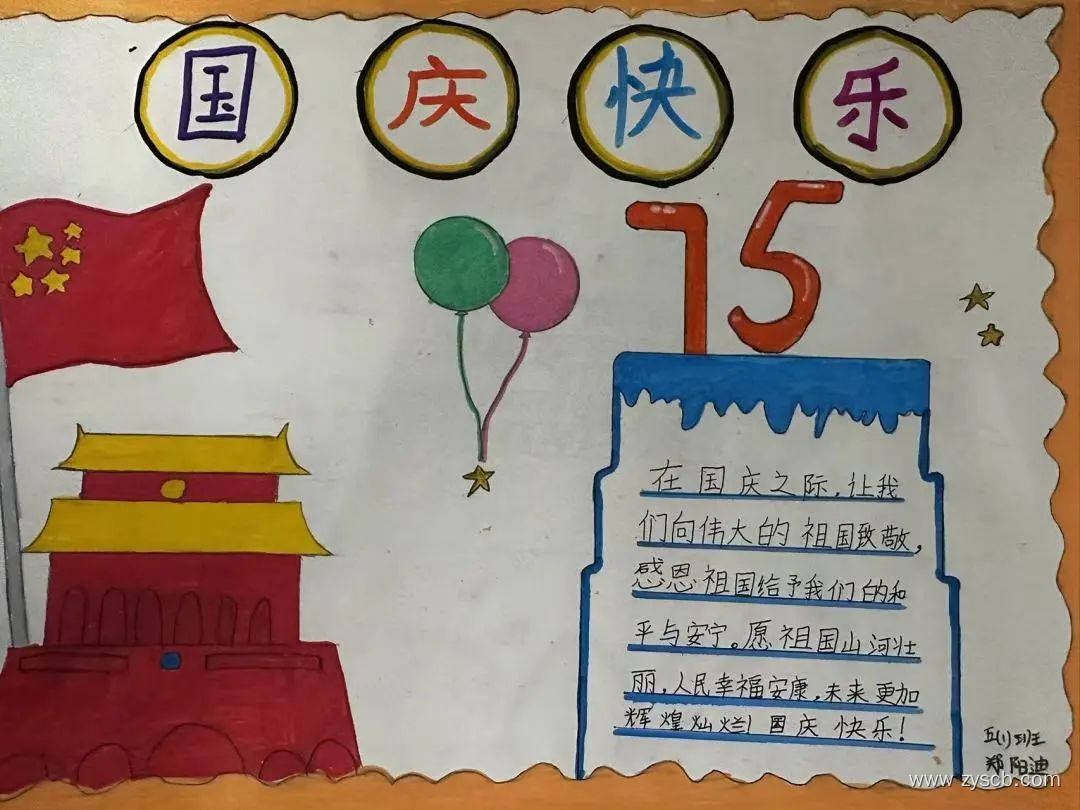 国庆快乐
75
在国庆之际,让我
们向伟大的祖国致敬,
感恩祖国给予我们的和
平与安宁。愿祖国山河壮
丽,人民幸福安康,未来更加
辉煌灿烂!国庆快乐!
五(1)班
郑阳迪
www.zyscb.com